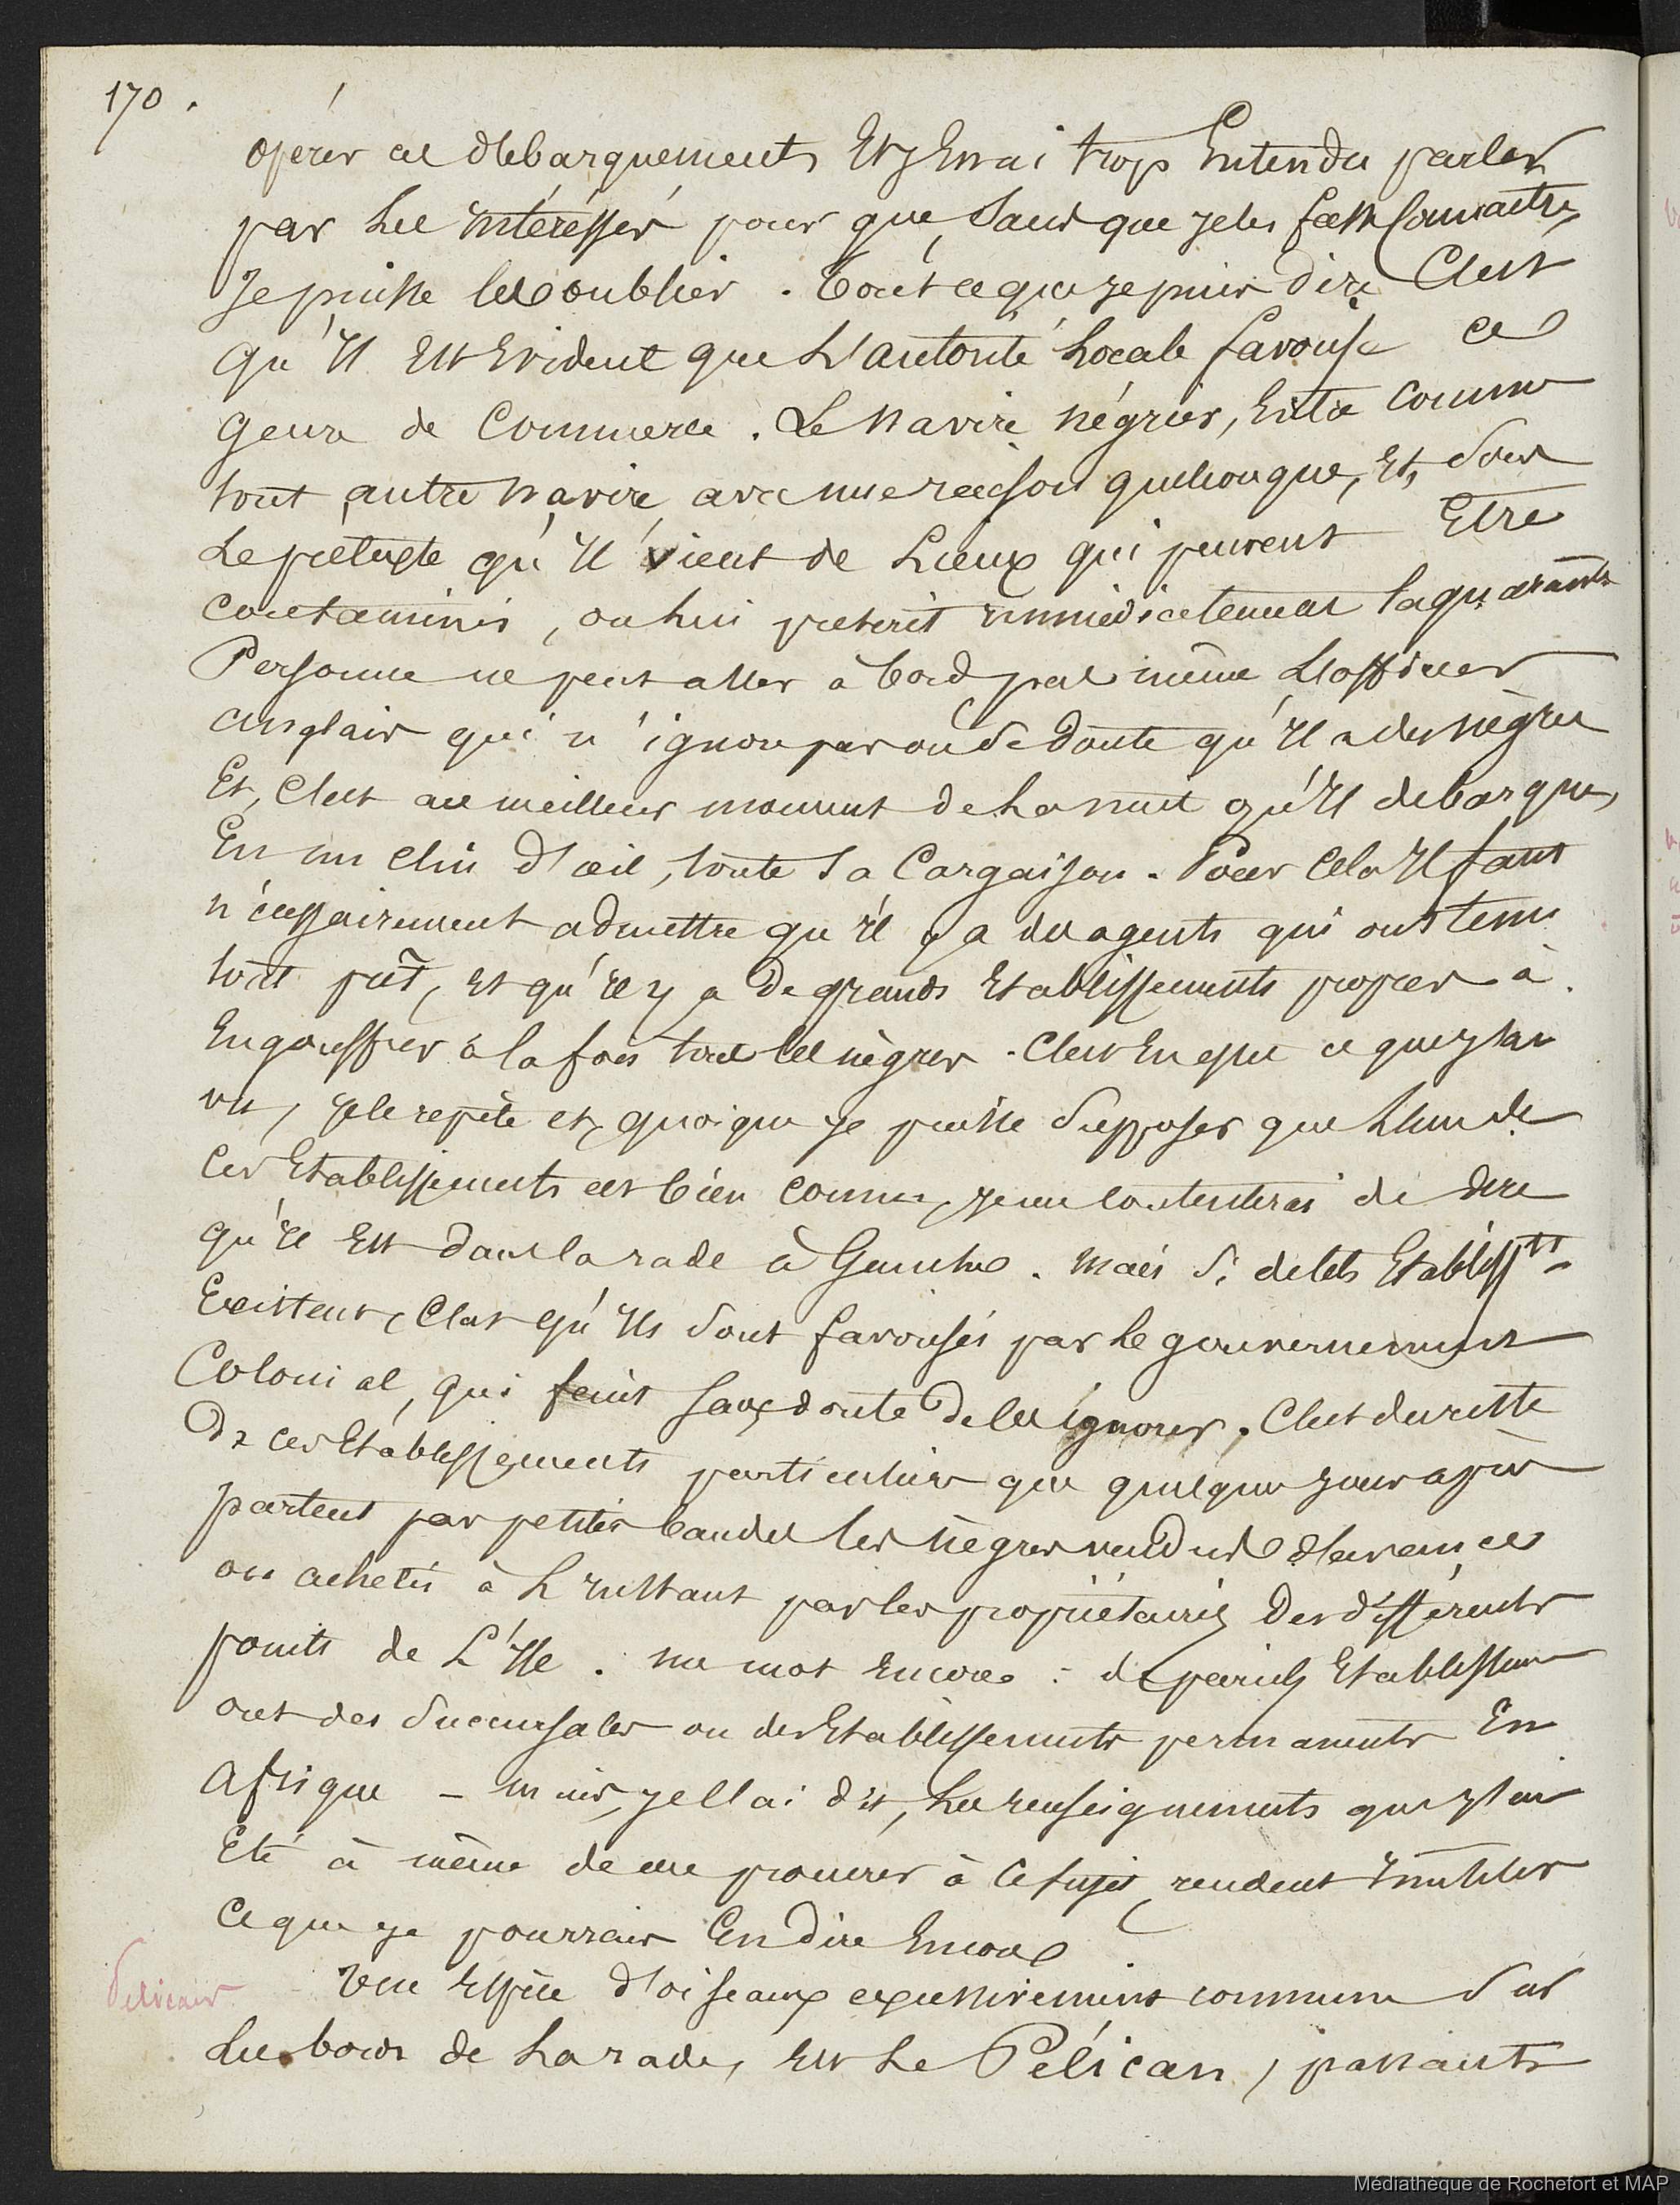 170.
opérer ces débarquements Et j'En ai trop Entendu parler
par les intéressés pour que, sans que je les fasse Connaître,
Je puisse les oublier. Tout ce que je puis dire C'est
qu'il Est Evident que L'autorité Locale favorise ce
genre de Commerce. Le Navire négrier, Entre comme
tout autre Navire, avec une raison quelconque, Et, sous
Le prétexte qu'il vient de Lieux qui peuvent Etre
contaminés, on lui prescrit immédiatement la quarantne
Personne ne peut aller à bord pas même L'officier
anglais qui n'ignore pas ou se doute qu'il a des nègres
Et, C'est au meilleur moment de La nuit qu'il débarque,
En un clin d'œil, toute sa Cargaison. Pour Cela Il faut
nécessairement admettre qu'il y a des agents qui ont tenu
tout prêt, Et qu'il y a de grands Etablissements propres à
Engouffrer à la fois tous les nègres. C'est En effet ce que j'ai
vu, je le répète et, quoique je puisse supposer que L'un de
Ces Etablissements est bien connu, je me contenterai de dire
qu'il Est dans la rade à Gauche. Mais si de tels Etablissts
Existent, C'est qu'ils sont favorisés par Le gouvernement
Colonial, qui feint sans doute de les ignorer. C'est du reste
De ces Etablissements particuliers que quelques jours après
partent par petites bandes les nègres vendus d'avance
ou achetés à L'instant par les propriétaires Des différents
points de L'Ile. Un mot Encore : de pareils Etablissem
ont des succursales ou des Etablissements permanents En
Afrique – mais, je l'ai dit, Les renseignements que j'ai
Eté à même de me procurer à Ce sujet, rendent Inutiles
Ce que je pourrais En dire Encore
Pélicans. Une Espèce d'oiseaux excessivement commune sur
Les bords de La rade, est Le Pélican, passants
Médiathèque de Rochefort et MAP